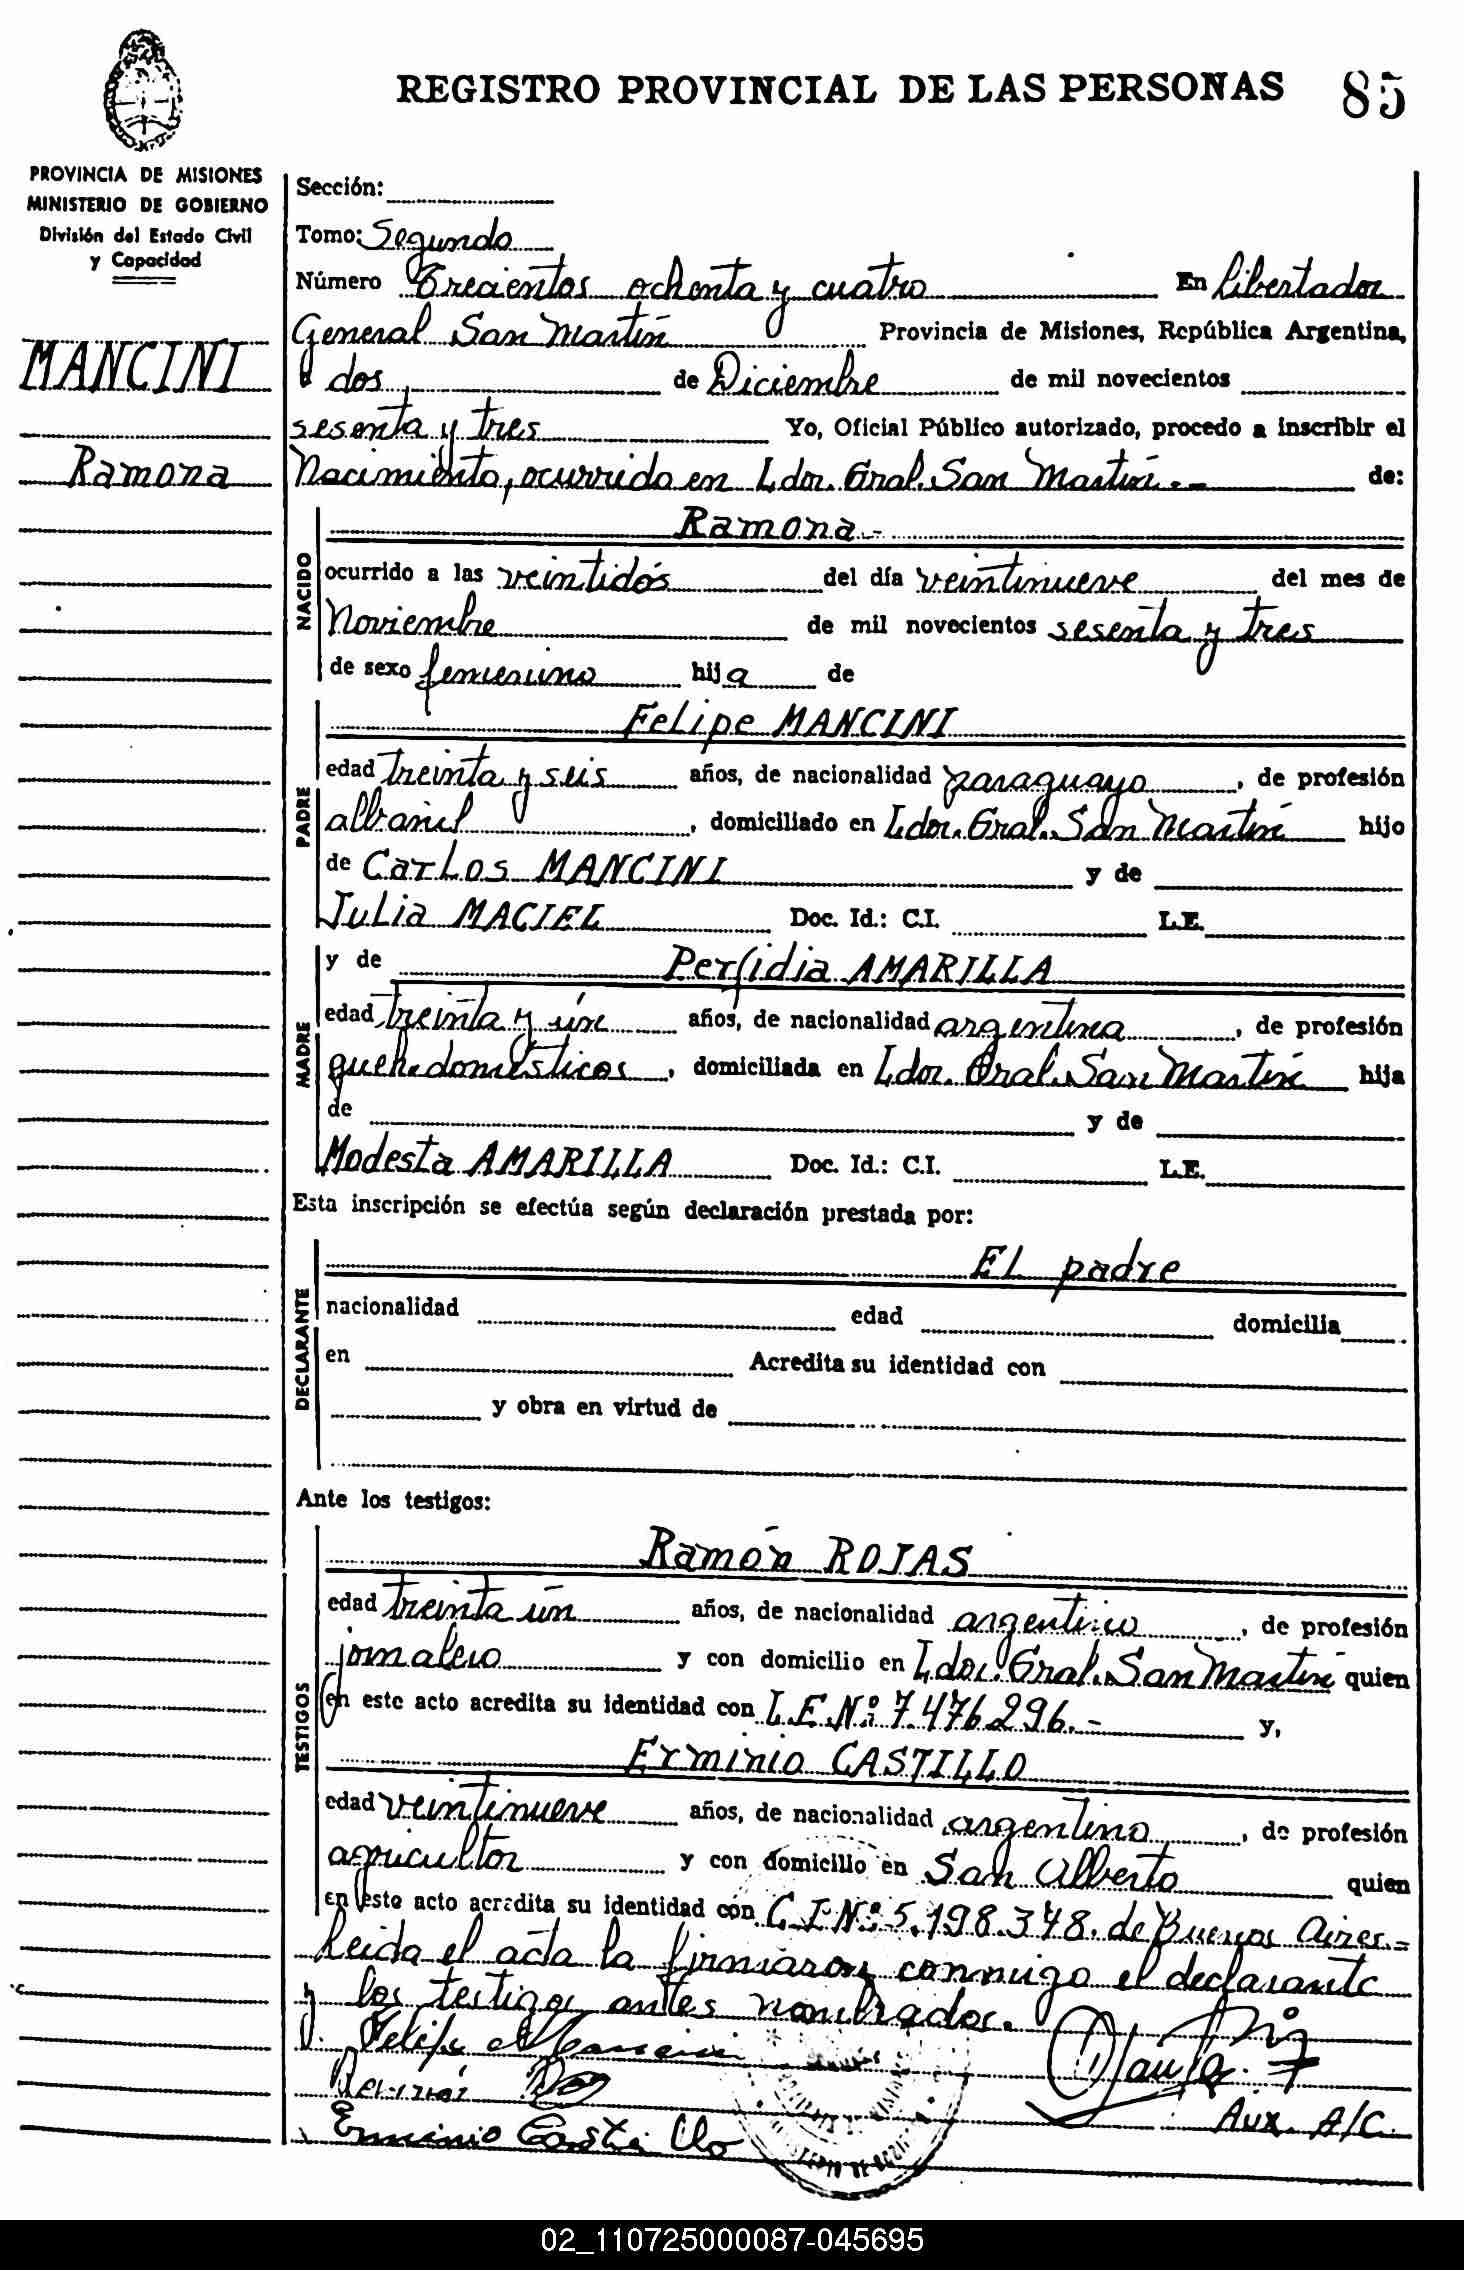 REGISTRO PROVINCIAL DE LAS PERSONAS 85
PROVINCIA DE MISIONES
MINISTERIO DE GOBIERNO
División del Estado Civil
y Capacidad
MANCINI
Ramona
Sección:
Tomo: Segundo
Número Trecientos ochenta y cuatro En Libertador
General San Martín Provincia de Misiones, República Argentina,
a dos de Diciembre de mil novecientos
sesenta y tres Yo, Oficial Público autorizado, procedo a inscribir el
Nacimiento, ocurrido en Ldor. Gral. San Martín.- de:
NACIDO
Ramona.-
ocurrido a las veintidós del día veintinueve del mes de
Noviembre de mil novecientos sesenta y tres
de sexo femenino hija de
PADRE
Felipe MANCINI
edad treinta y seis años, de nacionalidad paraguayo, de profesión
albañil, domiciliado en Ldor. Gral. San Martín hijo
de Carlos MANCINI y de
Julia MACIEL Doc. Id.: C.I. L.E.
MADRE
y de Perfidia AMARILLA
edad treinta y ún años, de nacionalidad argentina, de profesión
queh.domésticos, domiciliada en Ldor. Gral. San Martín hija
de y de
Modesta AMARILLA Doc. Id.: C.I. L.E.
Esta inscripción se efectúa según declaración prestada por:
DECLARANTE
El padre
nacionalidad edad domicilia
en Acredita su identidad con
y obra en virtud de
Ante los testigos:
TESTIGOS
Ramón ROJAS
edad treinta ún años, de nacionalidad argentino, de profesión
jornalero y con domicilio en Ldor. Gral. San Martín quien
en este acto acredita su identidad con L.E.Nº: 7.476.296.- y,
Erminio CASTILLO
edad veintinueve años, de nacionalidad argentino, de profesión
agricultor y con domicilio en San Alberto quien
en este acto acredita su identidad con C.I.Nº: 5.198.348. de Buenos Aires.=
Leida el acta la firmaron conmigo el declarante
y los testigos antes nombrados.
Felipe Mancini
Ramón
Erminio Castillo
Aux. A/C.
02_110725000087-045695